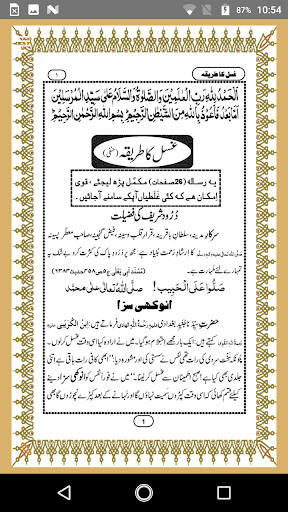 87% 10:54
۱ غسل کا طریقہ
اَلْحَمْدُ لِلّٰہِ رَبِّ الْعٰلَمِیْنَ وَالصَّلٰوۃُ وَالسَّلَامُ عَلٰی سَیِّدِ الْمُرْسَلِیْنَ
اَمَّا بَعْدُ فَاَعُوْذُ بِاللّٰہِ مِنَ الشَّیْطٰنِ الرَّجِیْمِ بِسْمِ اللّٰہِ الرَّحْمٰنِ الرَّحِیْمِ
غسل کا طریقہ (حنفی)
یہ رسالہ (26 صفحات) مکمل پڑھ لیجئے، قوی
امکان ھے کہ کئی غلطیاں آپکے سامنے آجائیں۔
دُرُود شریف کی فضیلت
سرکارِ مدینہ، سلطانِ باقرینہ، قرارِ قلب و سینہ، فیض گنجینہ، صاحبِ معطر پسینہ
کا ارشادِ رحمت بنیاد ہے، مجھ پر دُرُودِ پاک کی کثرت کرو بے شک یہ
تمہارے لئے طہارت ہے۔
صَلُّوا عَلَی الْحَبِیْب! صلَّی اللہُ تعالٰی علٰی محمَّد
انوکھی سزا
حضرتِ سیِّدُنا جُنید بغدادی فرماتے ہیں: ابنُ الکُرَیْبی
کہتے ہیں: ایک بار مجھے احتلام ہو گیا۔ میں نے ارادہ کیا اسی وقت غسل کر لوں۔
چونکہ سخت سردی کی رات تھی نفس نے سستی کی اور مشورہ دیا: "ابھی کافی رات باقی ہے اتنی
جلدی بھی کیا ہے! صبح اطمینان سے غسل کر لینا۔" میں نے فوراً نفس کو انوکھی سزا دینے
کیلئے قسم کھائی کہ اسی وقت کپڑوں سمیت نہاؤں گا اور نہانے کے بعد کپڑے نچوڑوں گا بھی
1